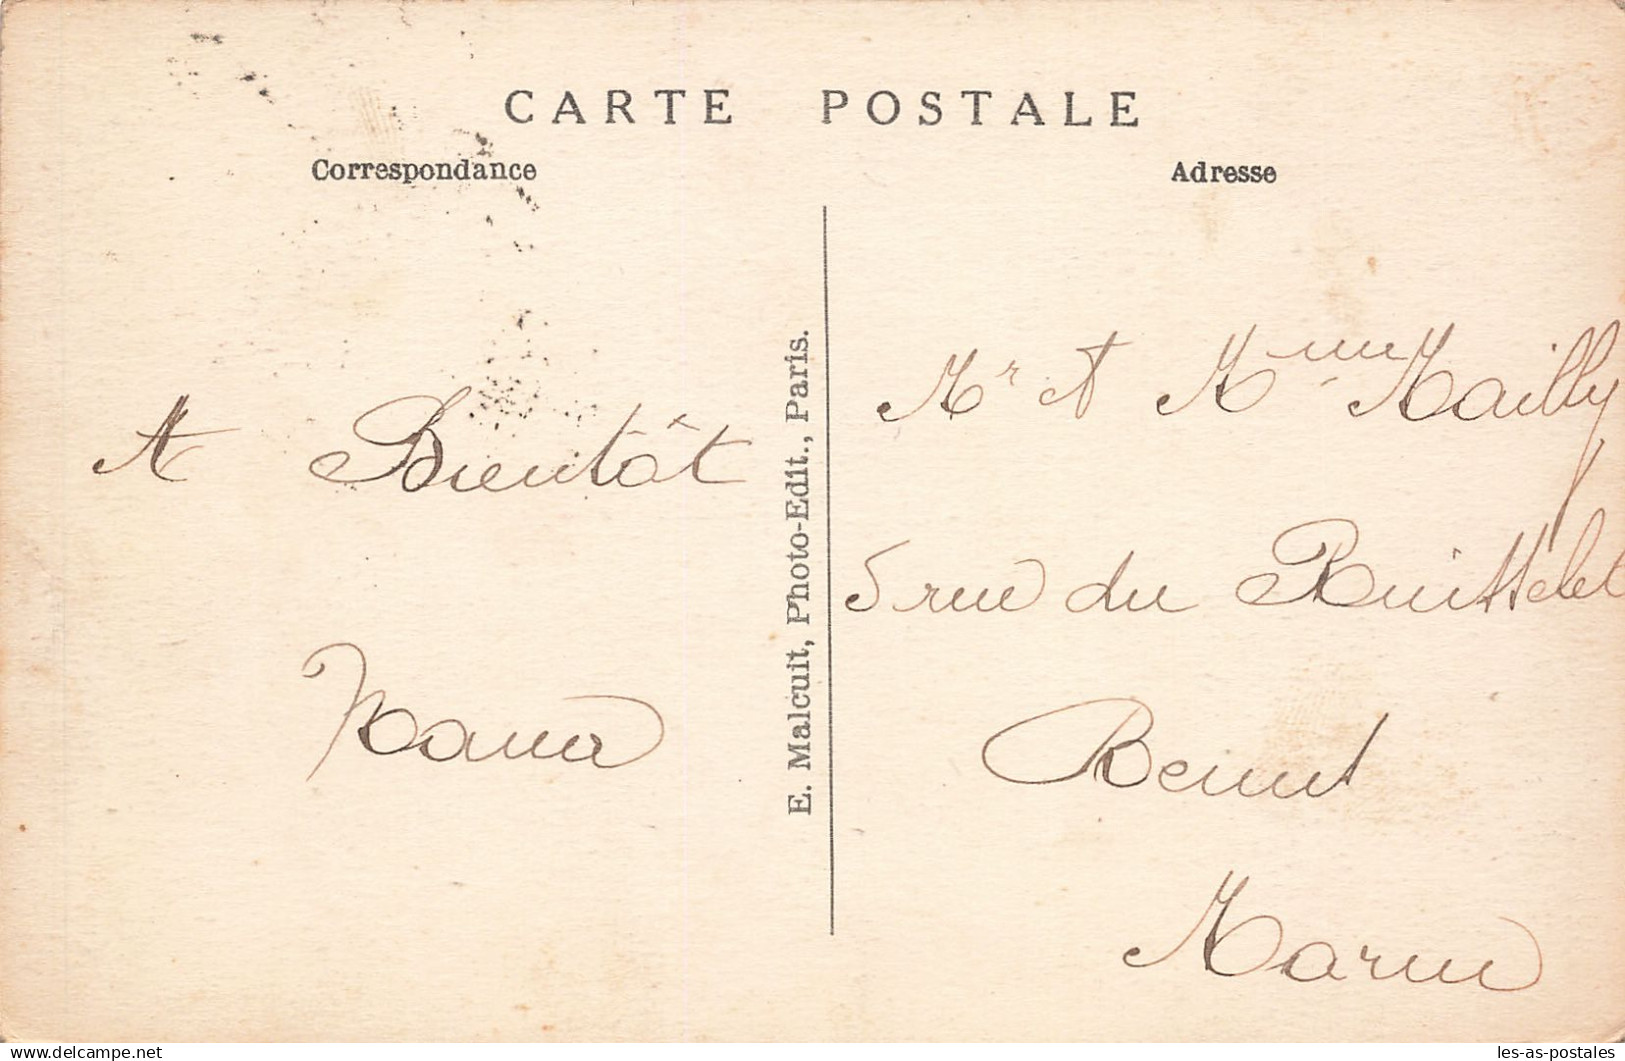 CARTE POSTALE
Correspondance
Adresse
A Bientôt
E. Malcuit, Photo-Edit., Paris.
Mr et Mme Mailly
5 rue du Ruisselet
Reims
Marne
Delcampe.net
les-as-postales